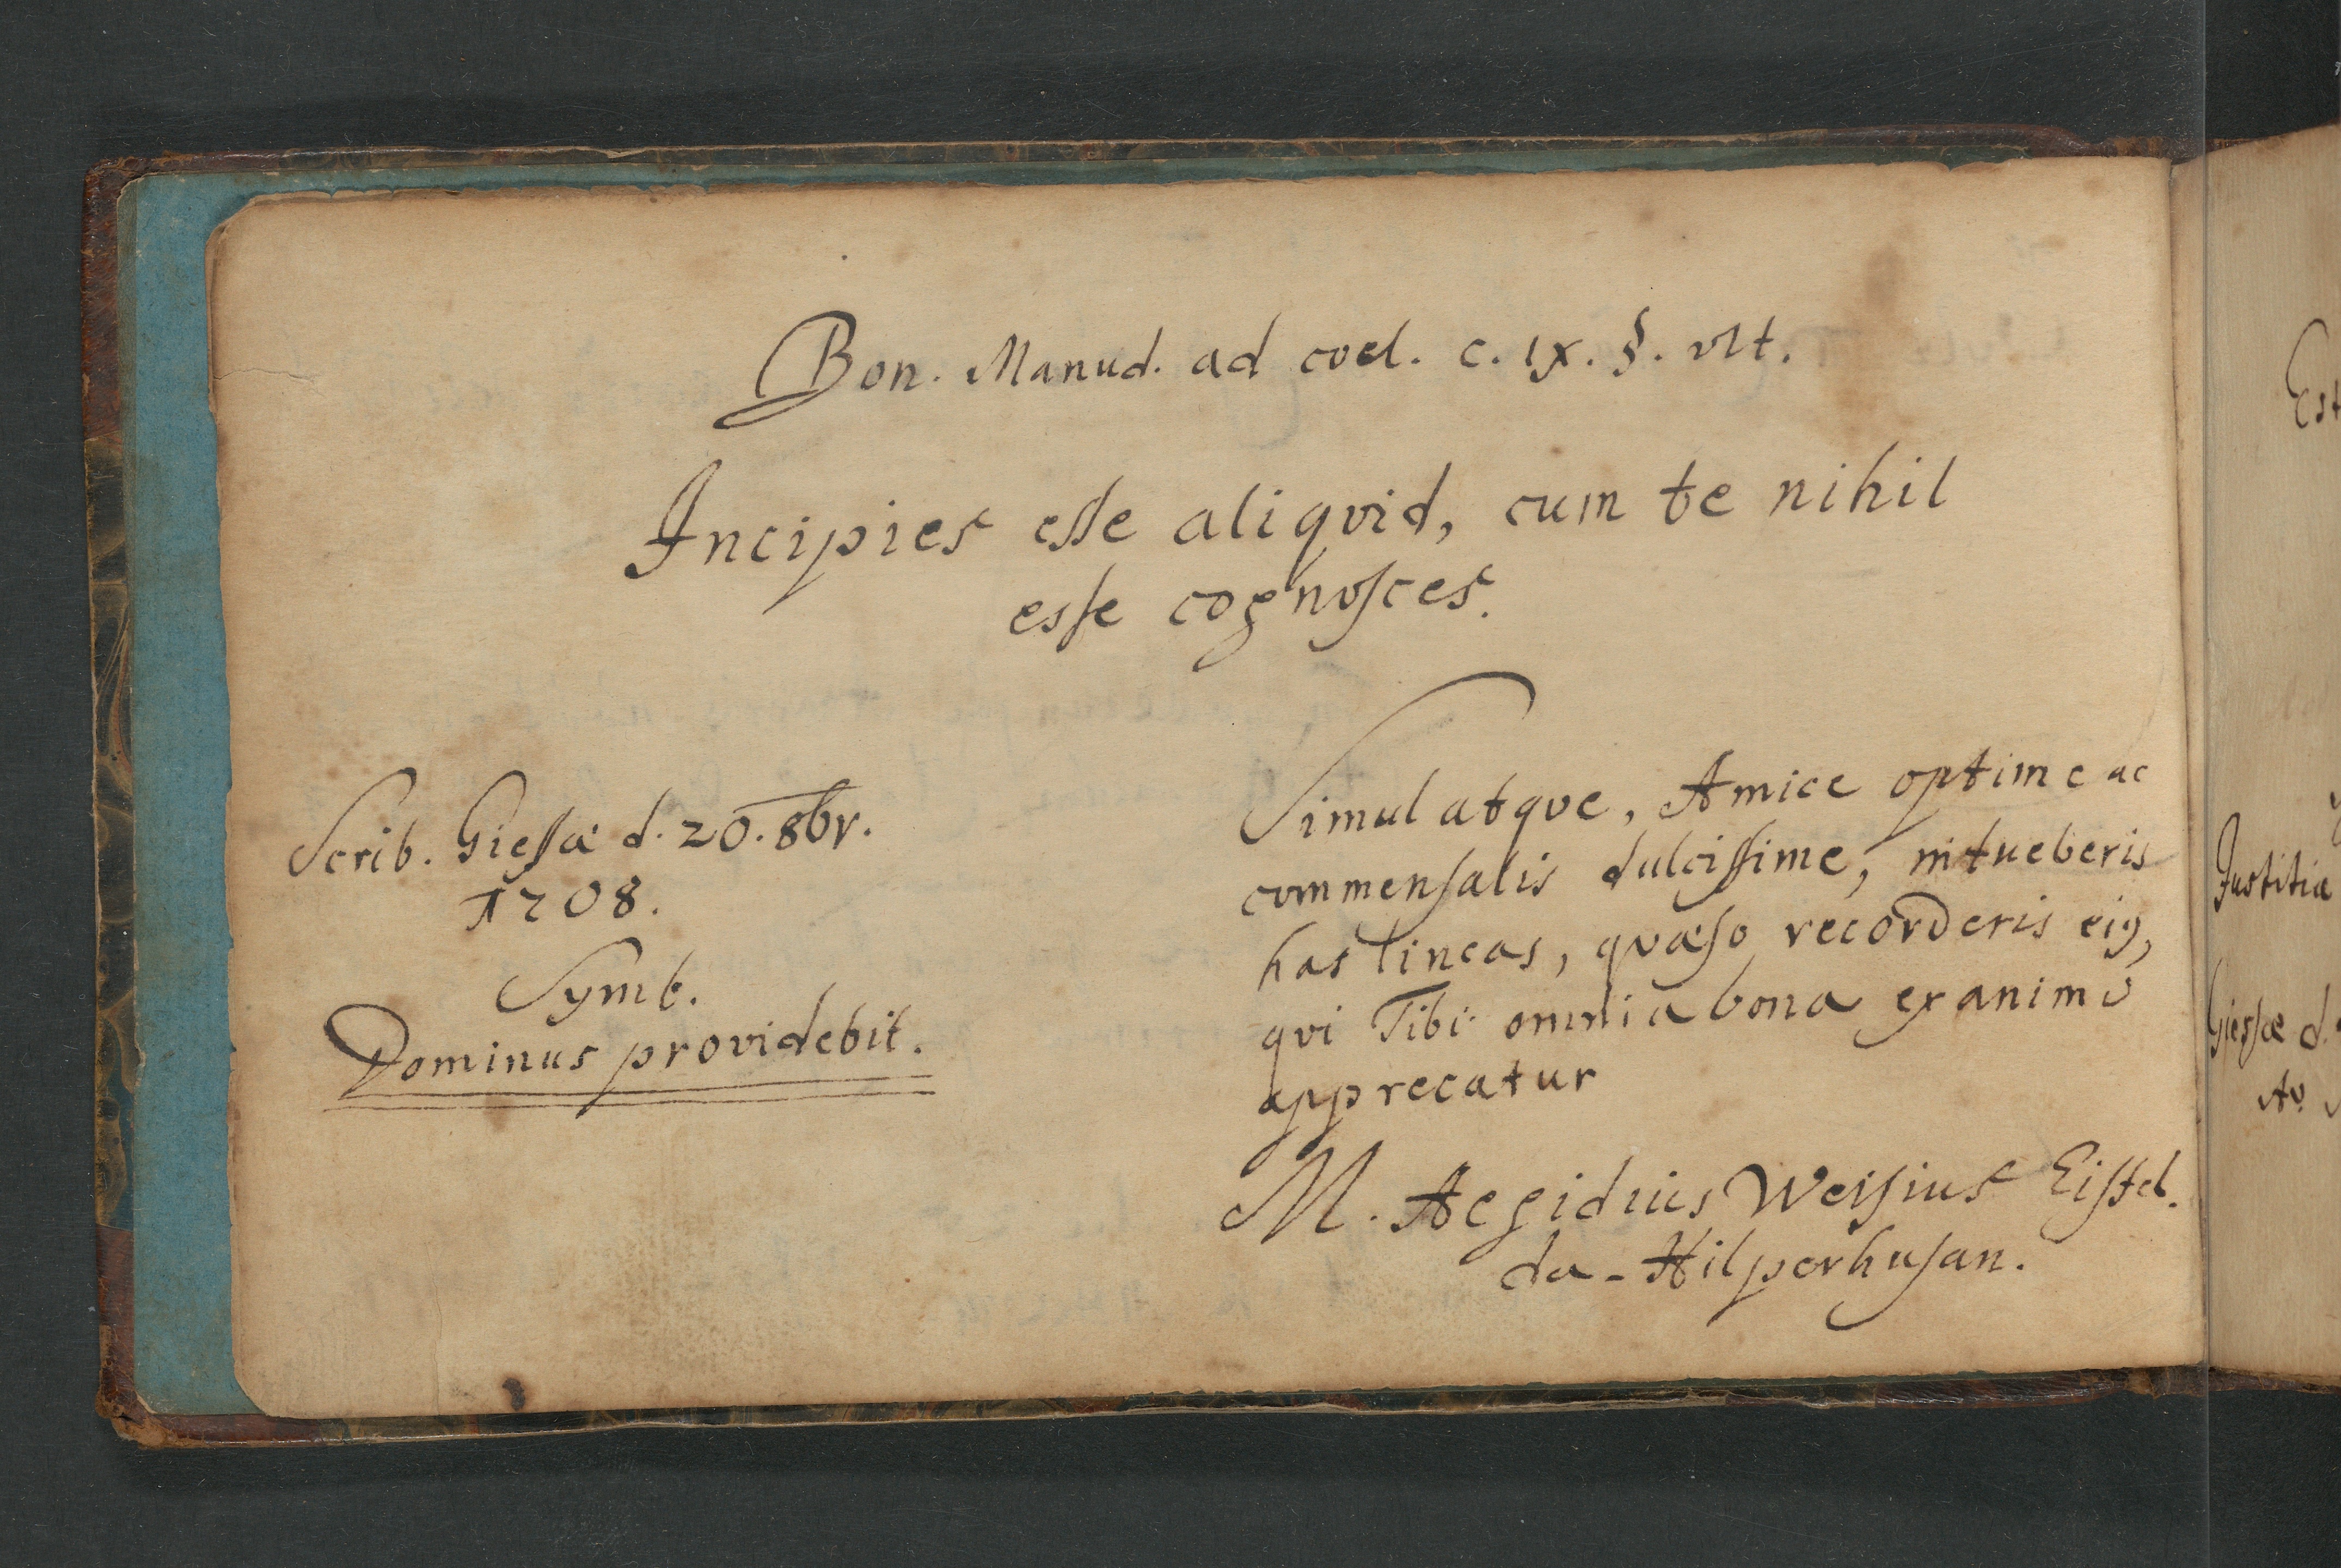 Bon. Manud. ad coel. c. IX. §. vlt.
Incipies eſſe aliqvid, cum te nihil
esſe cognoſces.
Scrib. Gieſſæ d. 20. 8br.
1708.
Symb.
Dominus providebit.
Simul atqve, Amice optime ac
commenſalis dulciſſime, intueberis
has lineas, qvæſo recorderis ejꝰ,
qvi Tibi omnia bona ex animo
apprecatur
M. Aegidius Weiſius Eiſfel.
da-Hilperhuſan.
Est
Justitia
Gieſſæ d.
Ao.